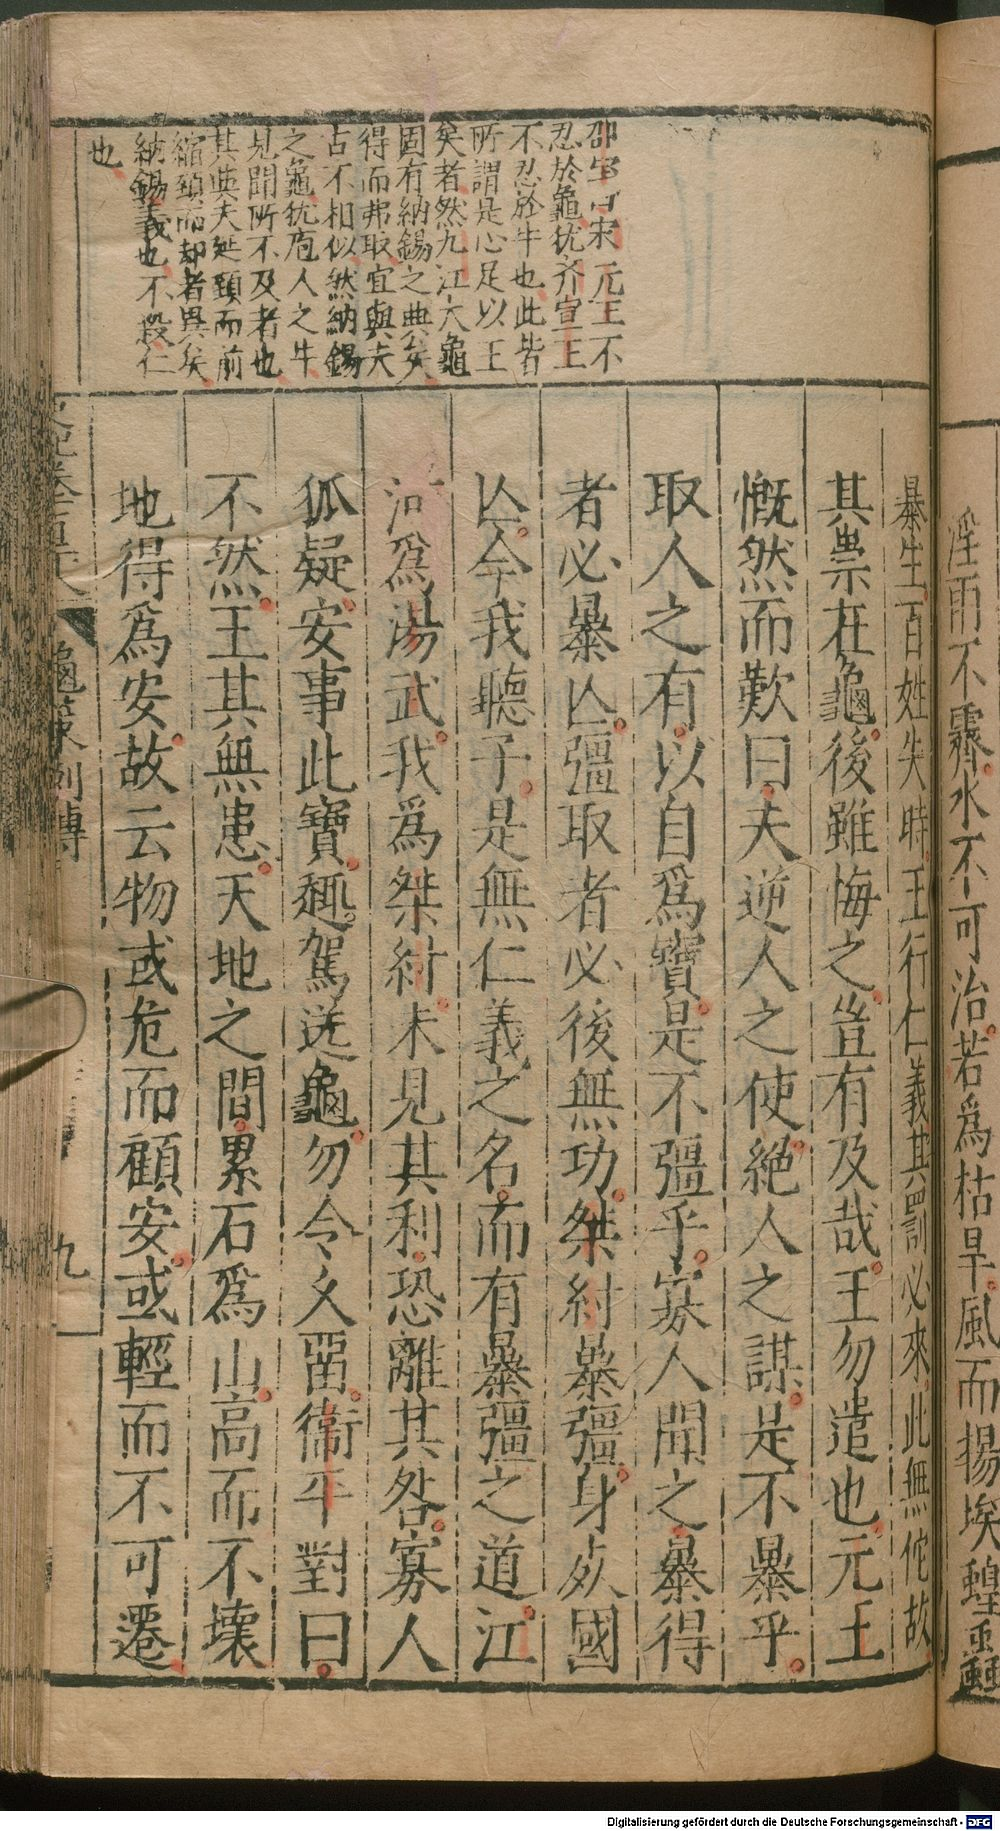 淫雨不霽水不可治若爲枯旱風而揚埃蝗蟲
暴生百姓失時王行仁義其罰必來此無佗故
其祟在龜後雖悔之豈有及哉王勿遣也元王
慨然而歎曰夫逆人之使絕人之謀是不暴乎
取人之有以自爲寶是不彊乎寡人聞之暴得
者必暴亾彊取者必後無功桀紂暴彊身死國
亾今我聽子是無仁義之名而有暴彊之道江
河爲湯武我爲桀紂未見其利恐離其咎寡人
狐疑安事此寶趣駕送龜勿令久畱衞平對曰
不然王其無患天地之間累石爲山高而不壞
地得爲安故云物或危而顧安或輕而不可遷
邵寶曰宋元王不
忍於龜犹齐宣王
不忍於牛也此皆
所謂是心足以王
矣者然九江大龜
固有納錫之典矣
得而弗取宜與夫
古不相似然納錫
之龜犹庖人之牛
見聞所不及者也
其與夫延頸而前
縮頸而却者異矣
納錫義也不殺仁
也
龜策列傳
九
Digitalisierung gefördert durch die Deutsche Forschungsgemeinschaft - DFG